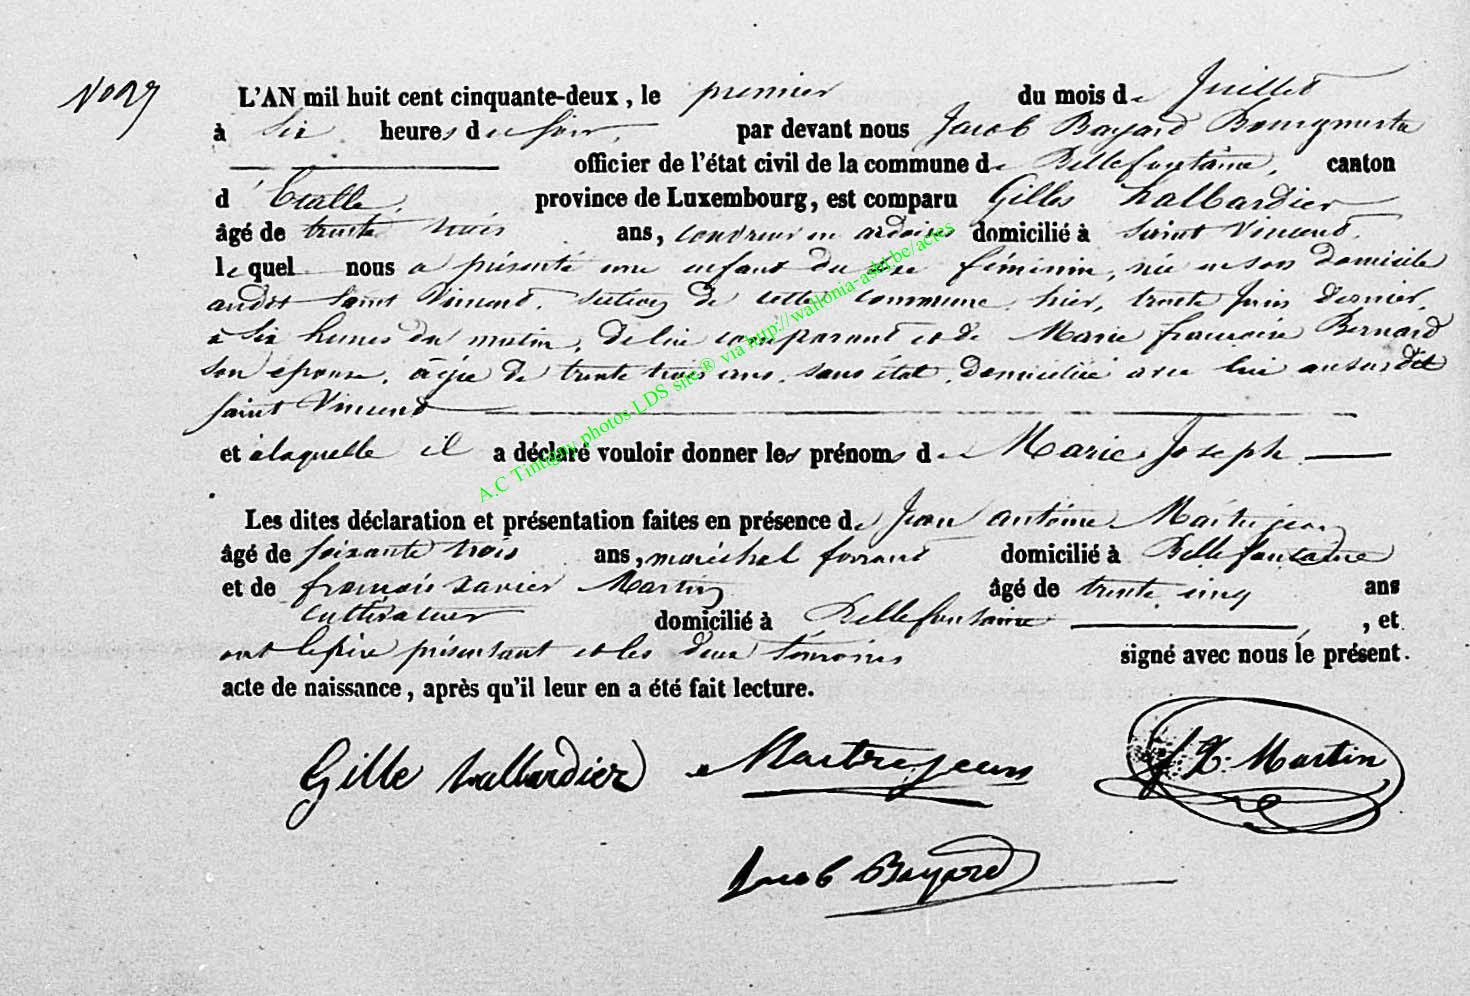 No 27
L'AN mil huit cent cinquante-deux, le premier du mois de Juillet
à six heures du soir, par devant nous Jacob Bayard Bourgmestre
officier de l'état civil de la commune de Bellefontaine, canton
d'Etalle, province de Luxembourg, est comparu Gilles halbardier
âgé de trente trois ans, couvreur en ardoises domicilié à Saint Vincent
lequel nous a présenté une enfant du sexe féminin, née en son domicile
audit Saint Vincent, section de cette commune, hier, trente Juin dernier,
à six heures du matin, de lui comparant et de Marie françoise Bernard
son épouse, âgée de trente trois ans, sans état, domiciliée avec lui au susdit
Saint Vincent
et à laquelle il a déclaré vouloir donner les prénoms de Marie Joseph
Les dites déclaration et présentation faites en présence de Jean antoine Maitrejean
âgé de soixante trois ans, maréchal ferrant domicilié à Bellefontaine
et de françois xavier Martin âgé de trente cinq ans
cultivateur domicilié à Bellefontaine, et
ont le père présentant et les deux témoins signé avec nous le présent
acte de naissance, après qu'il leur en a été fait lecture.
Gille halbardier Maitrejean f. X. Martin
Jacob Bayard
A.C Tintigny photos LDS site ® via http://wallonia-asbl.be/actes